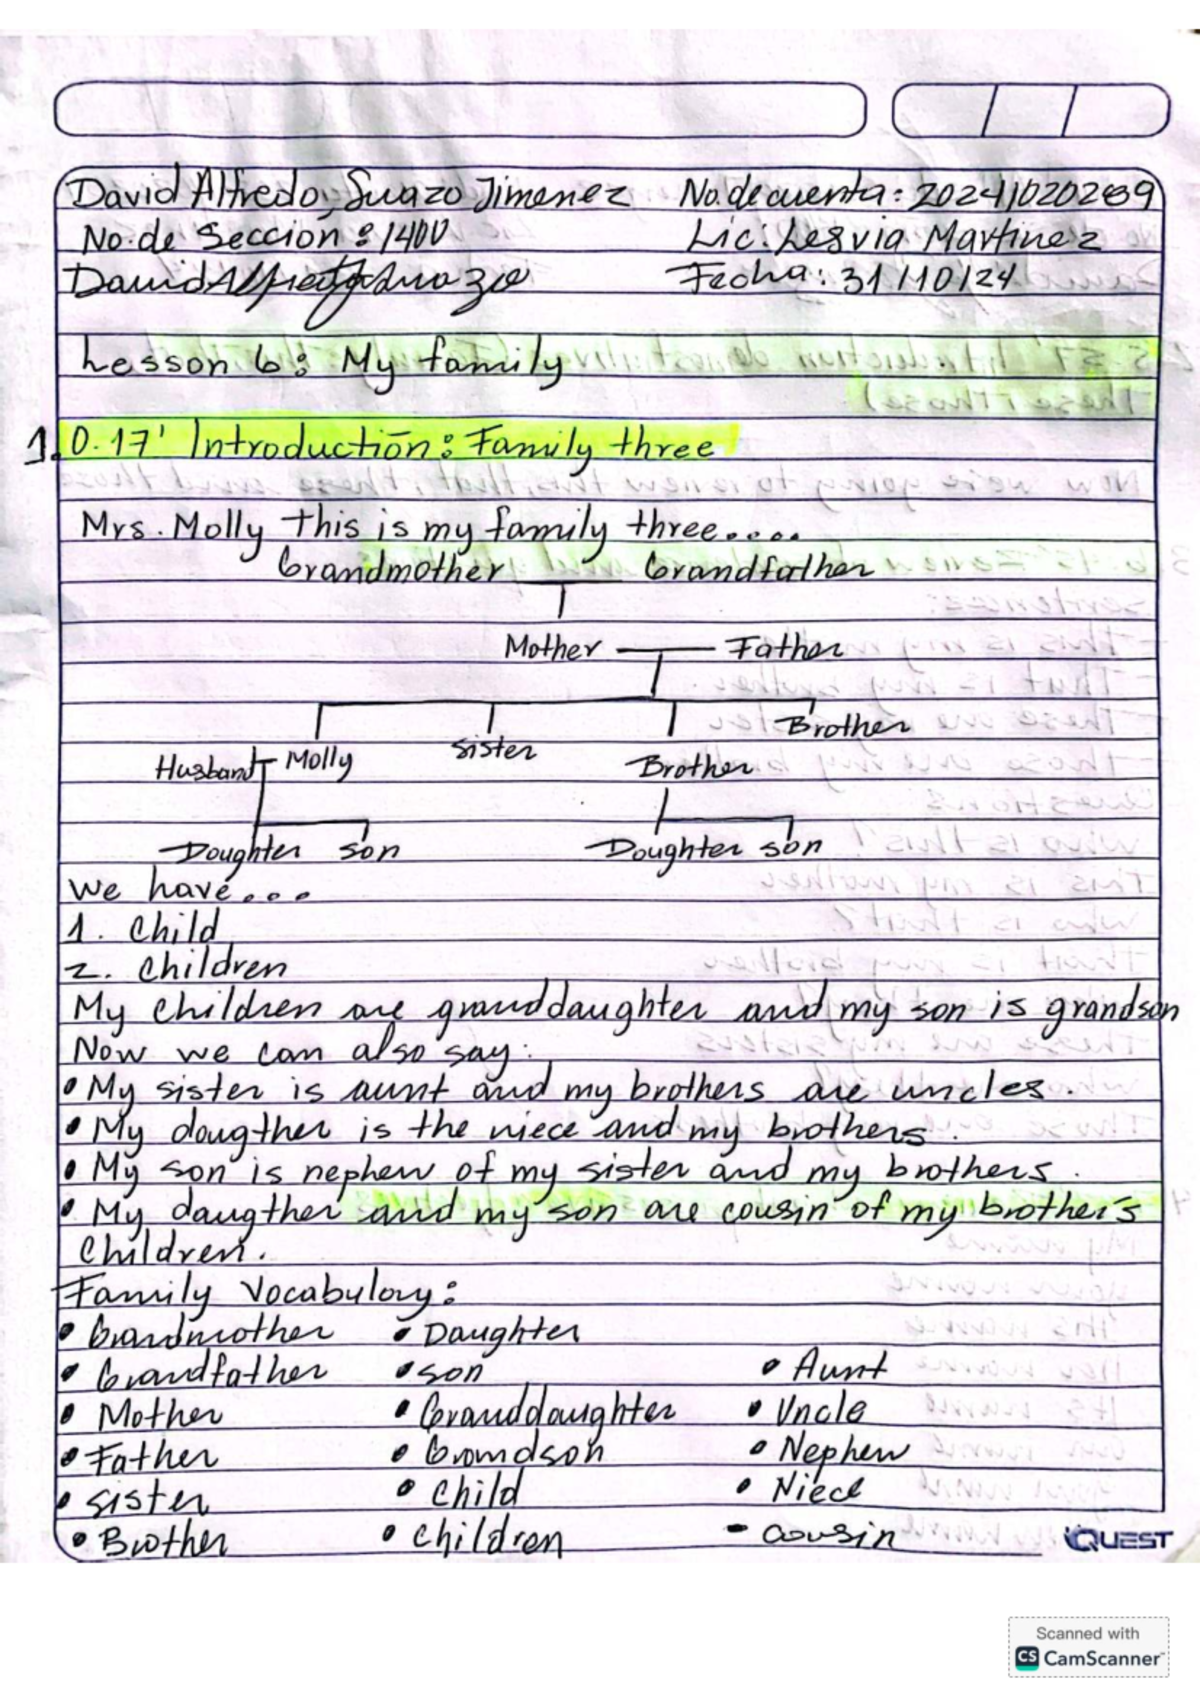 David Alfredo Suazo Jimenez No. de cuenta: 20241020289
No. de Sección: 1400 Lic: Lesvia Martinez
David Alfredo Suazo Fecha: 31/10/24
Lesson 6: My family
1. 0.17' Introduction: Family three
Mrs. Molly this is my family three....
Grandmother Grandfather
Mother Father
Brother
Husband Molly Sister Brother
Doughter son Doughter son
we have...
1. Child
2. Children
My children are granddaughter and my son is grandson
Now we can also say:
• My sister is aunt and my brothers are uncles.
• My dougther is the niece and my brothers.
• My son is nephew of my sister and my brothers.
• My daugther and my son are cousin of my brother's
children.
Family Vocabulary:
• Grandmother • Daughter
• Grandfather • son • Aunt
• Mother • Granddaughter • Uncle
• Father • Grandson • Nephew
• sister • Child • Niece
• Brother • Children - cousin
QUEST
Scanned with
CS CamScanner